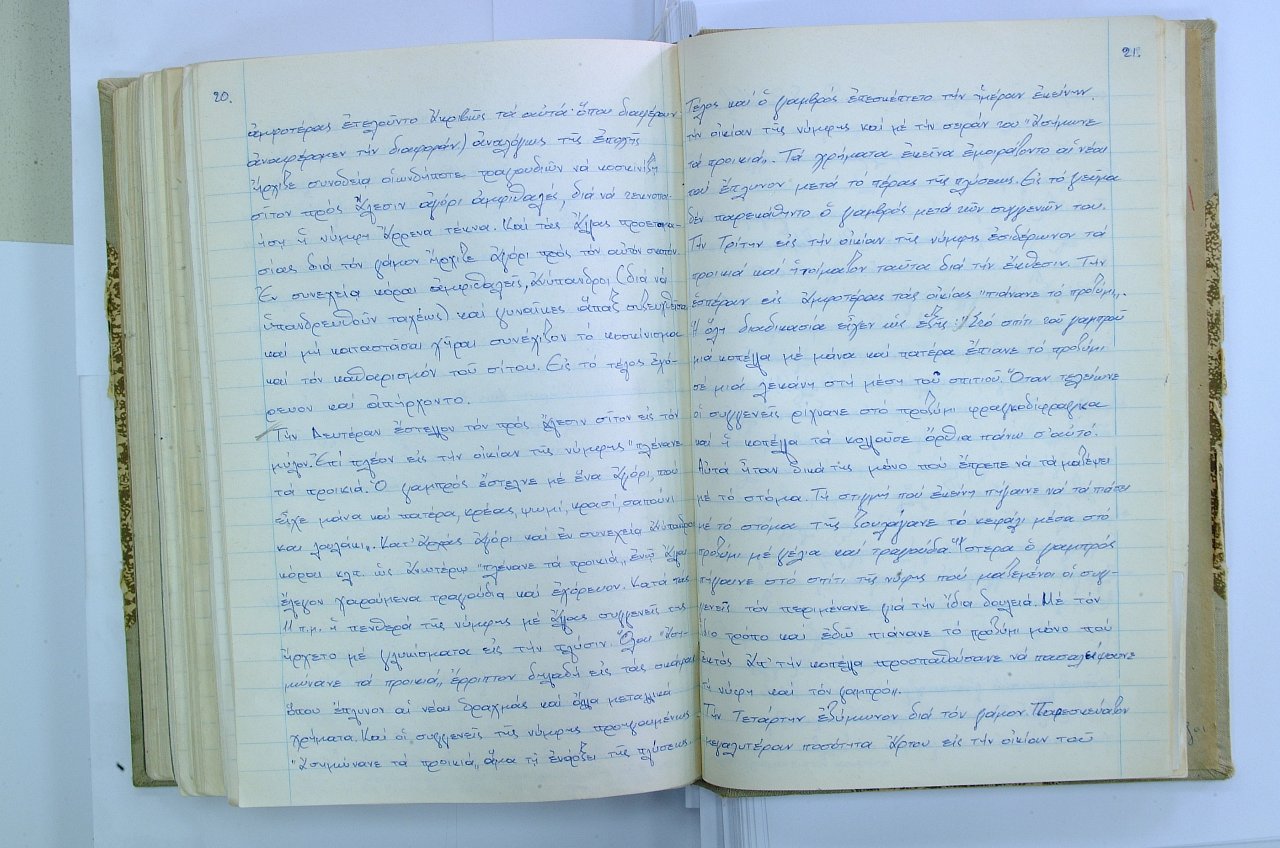 20.
ἀμφοτέρας ἐτελοῦντο ἀκριβῶς τά αὐτά· ὅπου διαφέρουν
ἀναφέρομεν τήν διαφοράν.) ἀναλόγως τῆς ἐποχῆς
ἤρχιζε συνοδεία οἱωνδήποτε τραγουδιῶν νά κοσκινίζῃ
σῖτον πρός ἄλεσιν ἀγόρι ἀμφιθαλές, διά νά τεκνοποι-
ήσῃ ἡ νύμφη ἄρρενα τέκνα. Καί τάς ἄλλας προετοιμα-
σίας διά τόν γάμον ἤρχιζε ἀγόρι πρός τόν αὐτόν σκοπόν.
Ἐν συνεχείᾳ κόραι ἀμφιθαλεῖς, ἀνύπανδροι (διά νά
ὑπανδρευθοῦν ταχέως) καί γυναῖκες ἅπαξ συζευχθεῖσαι
καί μή καταστᾶσαι χῆραι συνέχιζον τό κοσκίνισμα
καί τόν καθαρισμόν τοῦ σίτου. Εἰς τό τέλος ἐχό-
ρευον καί ἀπήρχοντο.
Τήν Δευτέραν ἔστελλον τόν πρός ἄλεσιν σῖτον εἰς τόν
μύλον. Ἐπί πλέον εἰς τήν οἰκίαν τῆς νύμφης "πλένανε
τά προικιά. Ὁ γαμπρός ἔστελνε μέ ἕνα ἀγόρι, πού
εἶχε μάνα καί πατέρα, κρέας, ψωμί, κρασί, σαπούνι
καί λουλάκι„. Κατ' ἀρχάς ἀγόρι καί ἐν συνεχείᾳ ἀνύπανδροι
κόραι κλπ. ὡς ἀνωτέρω "πλένανε τά προικιά„ ἐνῷ ἄλλαι
ἔλεγον χαρούμενα τραγούδια καί ἐχόρευον. Κατά τάς
11 π.μ. ἡ πενθερά τῆς νύμφης μέ ἄλλας συγγενεῖς της
ἤρχετο μέ γλυκίσματα εἰς τήν πλύσιν. Ὅλαι "ἀση-
μώνανε τά προικιά„ ἔρριπτον δηλαδή εἰς τάς σκάφας
ὅπου ἔπλυνον αἱ νέαι δραχμάς καί ἄλλα μεταλλικά
χρήματα. Καί οἱ συγγενεῖς τῆς νύμφης προηγουμένως
"ἀσημώνανε τά προικιά„ ἅμα τῇ ἐνάρξει τῆς πλύσεως.
21.
Τέλος καί ὁ γαμβρός ἐπεσκέπτετο τήν ἡμέραν ἐκείνην
τήν οἰκίαν τῆς νύμφης καί μέ τήν σειράν του "ἀσήμωνε
τά προικιά„. Τά χρήματα ἐκεῖνα ἐμοιράζοντο αἱ νέαι
πού ἔπλυνον μετά τό πέρας τῆς πλύσεως. Εἰς τό γεῦμα
δέν παρεκάθητο ὁ γαμβρός μετά τῶν συγγενῶν του.
Τήν Τρίτην εἰς τήν οἰκίαν τῆς νύμφης ἐσιδέρωνον τά
προικιά καί ἡτοίμαζον ταῦτα διά τήν ἔκθεσιν. Τήν
ἑσπέραν εἰς ἀμφοτέρας τάς οἰκίας "πιάνανε τό προζύμι„.
Ἡ ὅλη διαδικασία εἶχεν ὡς ἑξῆς: "Στό σπίτι τοῦ γαμπροῦ
μιά κοπέλλα μέ μάνα καί πατέρα ἔπιανε τό προζύμι
σέ μιά λεκάνη στή μέση τοῦ σπιτιοῦ. Ὅταν τελείωνε
οἱ συγγενεῖς ρίχνανε στό προζύμι φραγκοδίφραγκα
καί ἡ κοπέλλα τά κολλοῦσε ὄρθια πάνω σ' αὐτό.
Αὐτά ἦταν δικά της μόνο πού ἔπρεπε νά τά μαζέψει
μέ τό στόμα. Τή στιγμή πού ἐκείνη πήγαινε νά τά πιάσει
μέ τό στόμα τῆς βουλάγανε τό κεφάλι μέσα στό
προζύμι μέ γέλια καί τραγούδια. Ὕστερα ὁ γαμπρός
πήγαινε στό σπίτι τῆς νύφης πού μαζεμένοι οἱ συγ-
γενεῖς τόν περιμένανε γιά τήν ἴδια δουλειά. Μέ τόν
ἴδιο τρόπο καί ἐδῶ πιάνανε τό προζύμι μόνο πού
ἐκτός ἀπ' τήν κοπέλλα προσπαθούσανε νά πασαλείψουνε
τή νύφη καί τόν γαμπρό„.
Τήν Τετάρτην ἐζύμωνον διά τόν γάμον. Παρεσκεύαζον
μεγαλυτέραν ποσότητα ἄρτου εἰς τήν οἰκίαν τοῦ